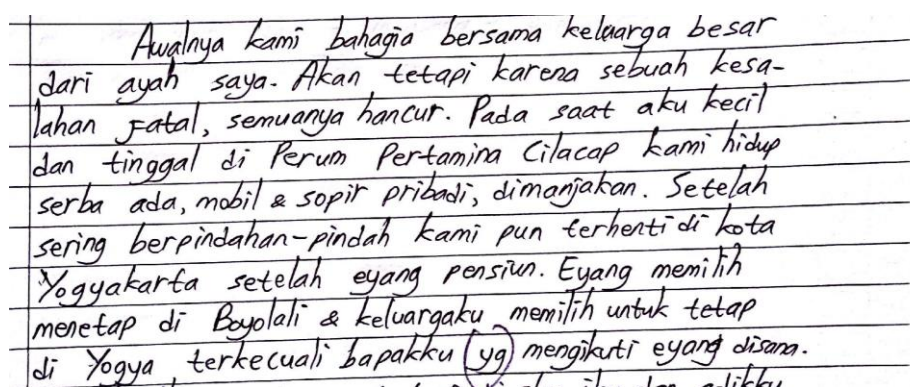 Awalnya kami bahagia bersama keluarga besar
dari ayah saya. Akan tetapi karena sebuah kesa-
lahan fatal, semuanya hancur. Pada saat aku kecil
dan tinggal di Perum Pertamina Cilacap kami hidup
serba ada, mobil & sopir pribadi, dimanjakan. Setelah
sering berpindahan-pindah kami pun terhenti di kota
Yogyakarta setelah eyang pensiun. Eyang memilih
menetap di Boyolali & keluargaku memilih untuk tetap
di Yogya terkecuali bapakku yg mengikuti eyang disana.
dan adikku